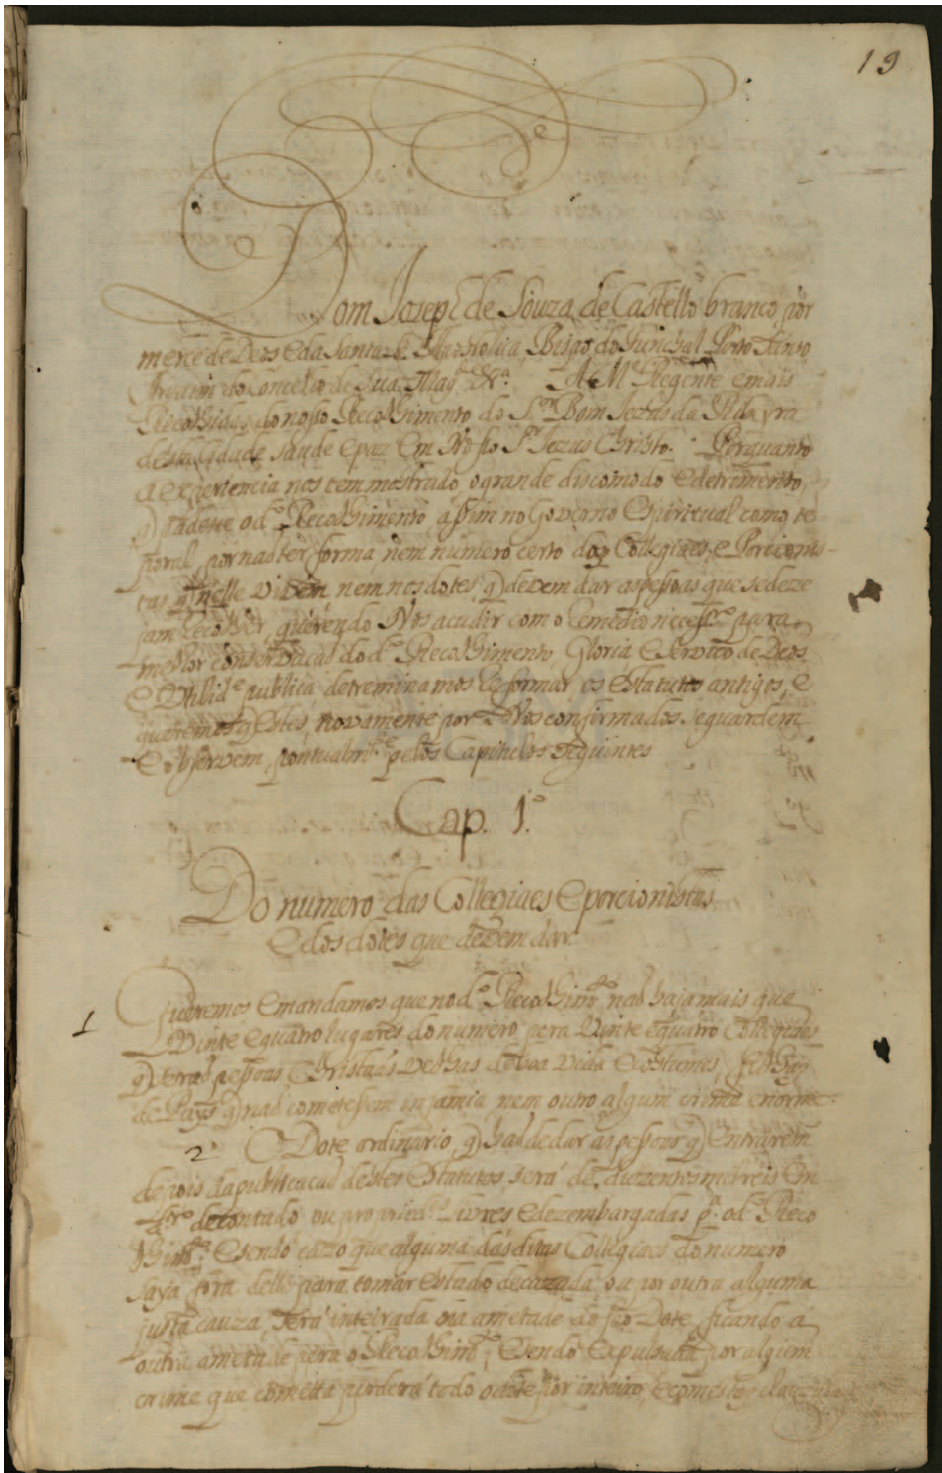 19
Dom Joseph de Souza de Castello branco por
merce de Deos e da Santa Sé Apostolica, Bispo do Funchal Porto Santo
do Concelho de Sua Mag.de &.a A M. Regente e mais
Recolhidas do nosso Recolhimento do S.or Bom Jezus da Ribeyra
desta Cidade saude e paz em Nosso S.r Jezus Christo. Porquanto
a experiencia nos tem mostrado o grande discomodo e detrimento,
q̃ padece o d.º Recolhimento assim no Governo Espiritual como te-
poral, por naõ ter forma, nem numero certo das Collegiaes e Porcionis-
tas q̃ nelle vivem nem nos dotes, q̃ devem dar as pessoas que se deze
jam recolher, querendo Nós acudir com o remedio necess.rº para
melhor conservaçaõ do d.º Recolhimento, Gloria e Serviço de Deos
e Utilid.e publica, detreminamos reformar os Estatutos antigos, e
queremos q̃ estes, novamente por Nós confirmados se guardem
e observem, pontualm.te pelos Capitulos seguintes
Cap. 1.º
Do numero das Collegiaes e porcionistas
e dos dotes que devem dar.
1 Queremos e mandamos que no d.º Recolhim.to naõ haja mais que
Vinte e quatro lugares do numero pera Vinte e quatro Collegiaes
q̃ seraõ pessoas Christaãs velhas de boa vida e costumes,
de Pays q̃ naõ cometessem infamia nem outro algum crime enorme.
2º O Dote ordinario, q̃ haõ de dar as pessoas q̃ entrarem
depois da publicaçaõ destes Estatutos, será de duzentos mil reis em
dr.º de contado ou propried.es livres e dezembargadas p.ª o d.º Reco
lhim.to; e sendo cazo que alguma das ditas Collegiaes do numero
saya fora delle para tomar estado de cazada, ou por outra alguma
justa cauza, será inteirada na ametade do seo Dote, ficando a
outra ametade pera o Recolhim.to; e sendo expulsada por algum
crime que cometta perderá todo o dote por inteiro, e com esta clauzula